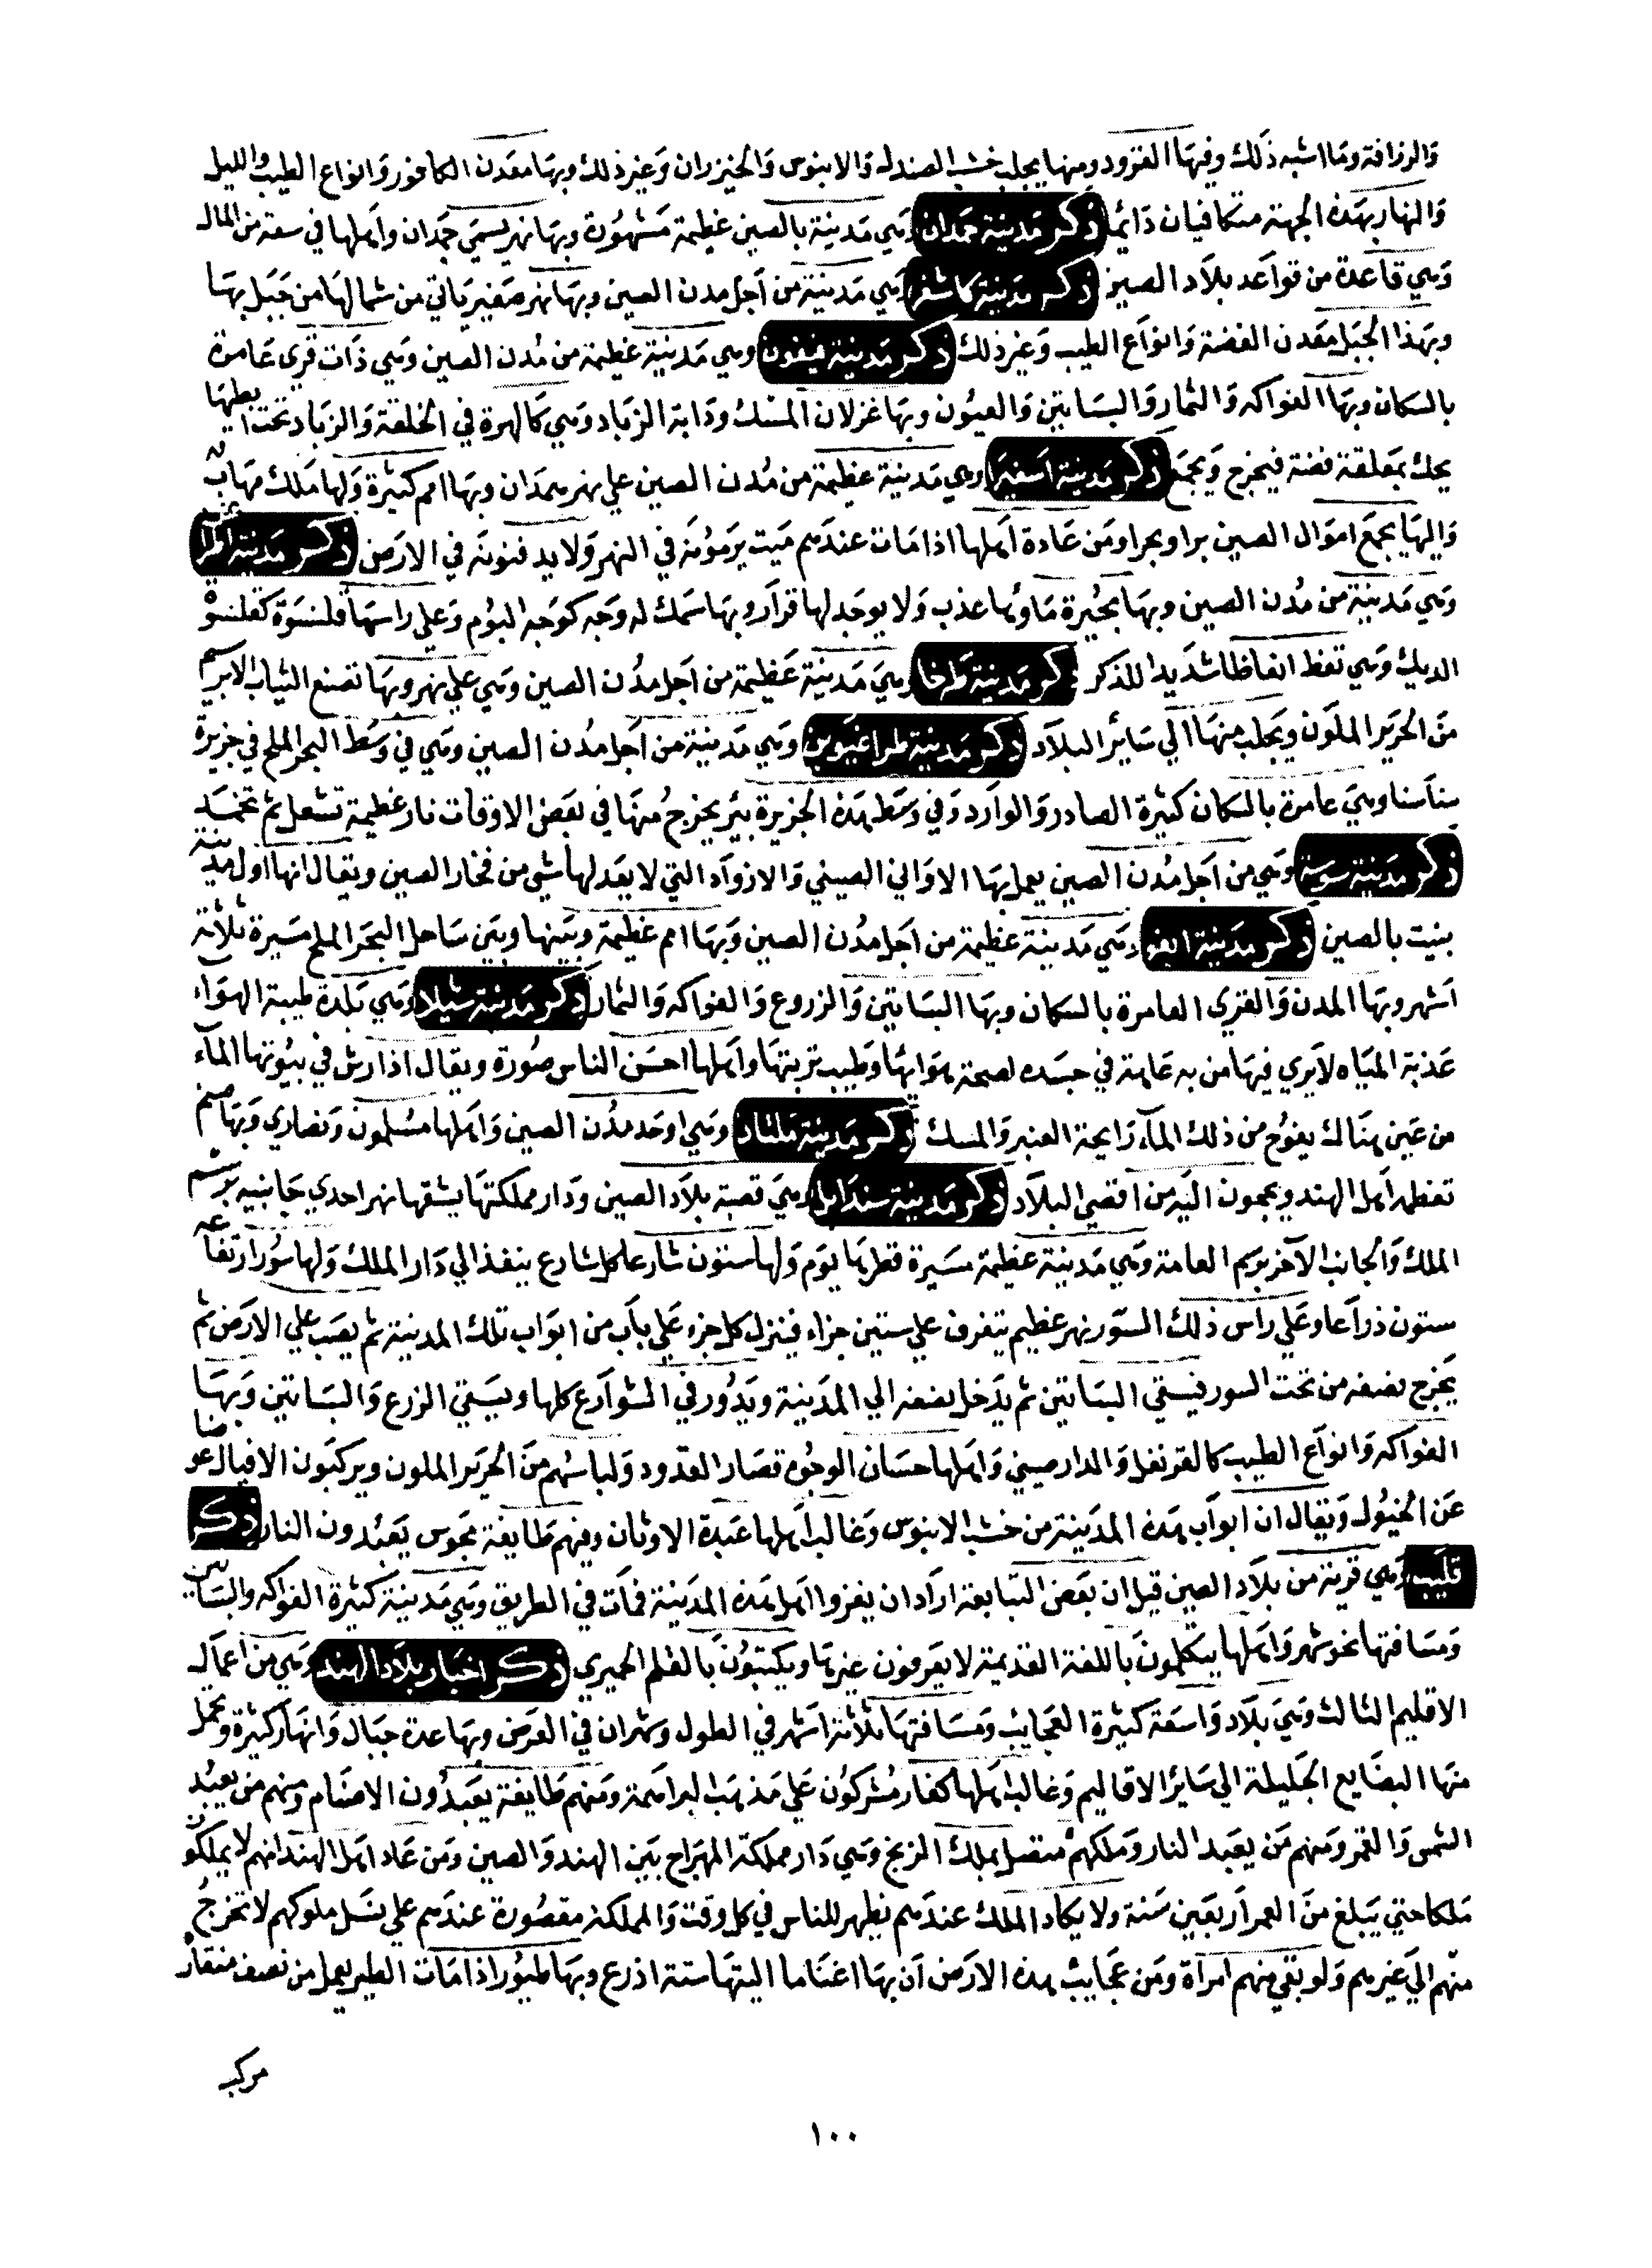 والزرافة وما اشبه ذلك وفيها القرود ومنها يجلب خشب الصندل والابنوس والخيزران وغير ذلك وبها معدن الكافور وانواع الطيب والليل
والنهار بهذه الجهة متكافيان دائما ذكر مدينة حمدان وهي مدينة بالصين عظيمة مشهورة وبها نهر يسمي حمدان واهلها في سعة من المال
وهي قاعدة من قواعد بلاد الصين ذكر مدينة كاشغر وهي مدينة من اجل مدن الصين وبها نهر صغير ياتي من شمالها من جبل بها
وبهذا الجبل معدن الفضة وانواع الطيب وغير ذلك ذكر مدينة وهي مدينة عظيمة من مدن الصين وهي ذات قري عامرة
بالسكان وبها الفواكه والثمار والبساتين والعيون وبها غزلان المسك ودابة الزباد وهي كالهرة في الخلقة والزباد تحت ابطها
يحك بمعلقة فضة فيخرج ويجمع ذكر مدينة اسفيرا وهي مدينة عظيمة من مدن الصين علي نهر حمدان وبها امم كثيرة ولها ملك مهاب
واليها يجمع اموال الصين برا وبحرا ومن عادة اهلها اذا مات عندهم ميت يرموه في النهر ولا يدفنونه في الارض ذكر مدينة
وهي مدينة من مدن الصين وبها بحيرة ماوها عذب ولا يوجد لها قرار وبها سمك له وجه كوجه البوم وعلي راسها قلنسوة كقلنسوة
الديك وهي تعظ انعاظا شديدا للذكر ذكر مدينة وهي مدينة عظيمة من اجل مدن الصين وهي علي نهر وبها تصنع الثياب الابريسم
من الحرير الملون ويجلب منها الي سائر البلاد ذكر مدينة طراغيون وهي مدينة من اجل مدن الصين وهي في وسط البحر الملح في جزيرة
سناسنا وهي عامرة بالسكان كثيرة الصادر والوارد وفي وسط هذه الجزيرة بئر يخرج منها في بعض الاوقات نار عظيمة تشعل ثم تخمد
ذكر مدينة سوسة وهي من اجل مدن الصين يعمل بها الاواني الصيني والازواد التي لا يعدلها شي من فخار الصين ويقال انها اول مدينة
بنيت بالصين ذكر مدينة وهي مدينة عظيمة من اجل مدن الصين وبها امم عظيمة وبينها وبين ساحل البحر الملح مسيرة ثلاثة
اشهر وبها المدن والقري العامرة بالسكان وبها البساتين والزروع والفواكه والثمار ذكر مدينة شيلا وهي بلدة طيبة الهواء
عذبة المياه لا يري فيها من به عاهة في جسده لصحة هوائها وطيب تربتها واهلها احسن الناس صورة ويقال اذا رش في بيوتها الماء
من عين هناك يفوح من ذلك الماء رايحة العنبر والمسك ذكر مدينة وهي اوحد مدن الصين واهلها مسلمون ونصاري وبها صنم
تعظمه اهل الهند ويحجون اليه من اقصي البلاد ذكر مدينة سندابل وهي قصبة بلاد الصين ودار مملكتها يشقها نهر احدي جانبيه برسم
الملك والجانب الآخر برسم العامة وهي مدينة عظيمة مسيرة قطرها يوم ولها ستون شارعا كل شارع ينفذ الي دار الملك ولها سور ارتفاعه
ستون ذراعا وعلي راس ذلك السور نهر عظيم يتفرق علي ستين جزاء فينزل كل جزء علي باب من ابواب تلك المدينة ثم يصب علي الارض ثم
يخرج نصفه من تحت السور فيسقي البساتين ثم يدخل نصفه الي المدينة ويدور في الشوارع كلها ويسقي الزرع والبساتين وبها
الفواكه وانواع الطيب كالقرنفل والدارصيني واهلها حسان الوجوه قصار القدود ولباسهم من الحرير الملون ويركبون الافيال عوضا
عن الخيول ويقال ان ابواب هذه المدينة من خشب الابنوس وغالب اهلها عبدة الاوثان وفيهم طايفة مجوس يعبدون النار ذكر
قليب وهي قرية من بلاد الصين قيل ان بعض التبابعة اراد ان يغزوا اهل هذه المدينة فمات في الطريق وهي مدينة كثيرة الفواكه والبساتين
ومسافتها نحو شهر واهلها يتكلمون باللغة القديمة لا يعرفون غيرها ويكتبون بالقلم الحميري ذكر اخبار بلاد الهند وهي من اعمال
الاقليم الثالث وهي بلاد واسعة كثيرة العجايب ومسافتها ثلاثة اشهر في الطول وشهران في العرض وبها عدة جبال وانهار كثيرة ويحمل
منها البضايع الجليلة الي سائر الاقاليم وغالب اهلها كفار مشركون علي مذهب البراهمة ومنهم طايفة يعبدون الاصنام ومنهم من يعبد
الشمس والقمر ومنهم من يعبد النار وملكهم متصل بملك الزنج وهي دار مملكة المهراج بين الهند والصين ومن عاد اهل الهند انهم لا يملكون
ملكا حتي يبلغ من العمر اربعين سنة ولا يكاد الملك عندهم يظهر للناس في كل وقت والمملكة مقصورة عندهم علي نسل ملوكهم لا تخرج
منهم الي غيرهم ولو بقي منهم امراة ومن عجايب هذه الارض ان بها اغناما اليتها ستة اذرع وبها طيورا اذا مات الطير يعمل من نصف منقاره
مركب
١٠٠